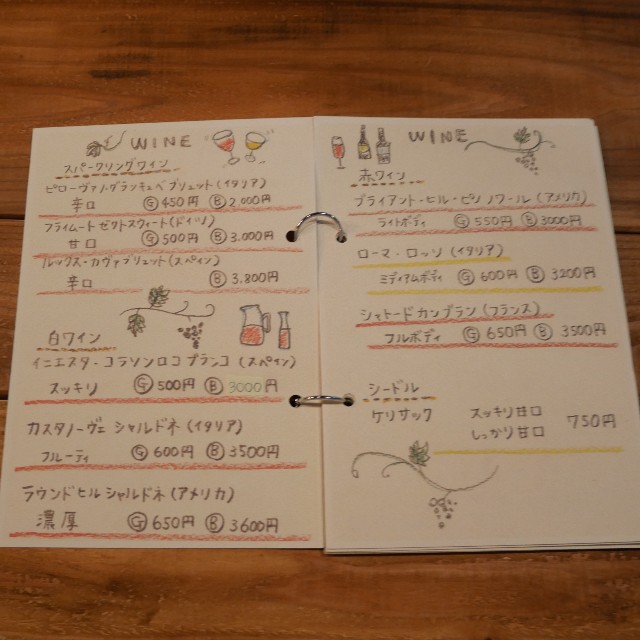 WINE
スパークリングワイン
ピローヴァノ・グランキュベブリュット(イタリア)
辛口 Ⓖ450円 Ⓑ2,000円
フライムートゼクトスウィート(ドイツ)
甘口 Ⓖ500円 Ⓑ3,000円
ルックス・カヴァブリュット(スペイン)
辛口 Ⓑ3,800円
白ワイン
イニエスタ・コラソンロコブランコ(スペイン)
スッキリ Ⓖ500円 Ⓑ3000円
カスタノーヴェ シャルドネ(イタリア)
フルーティ Ⓖ600円 Ⓑ3500円
ラウンドヒルシャルドネ(アメリカ)
濃厚 Ⓖ650円 Ⓑ3600円
WINE
赤ワイン
ブライアント・ヒル・ピノ ノワール(アメリカ)
ライトボディ Ⓖ550円 Ⓑ3000円
ローマ・ロッソ(イタリア)
ミディアムボディ Ⓖ600円 Ⓑ3200円
シャトードカンブラン(フランス)
フルボディ Ⓖ650円 Ⓑ3500円
シードル
ケリサック スッキリ甘口 750円
しっかり甘口